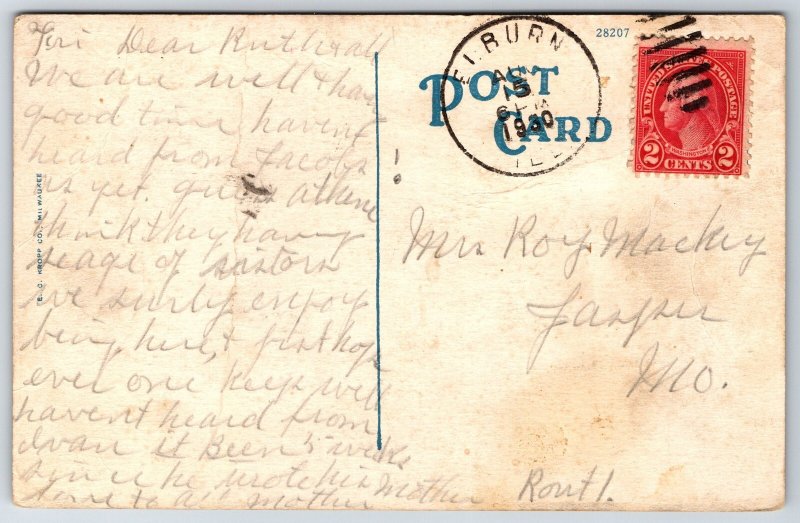 Fri Dear Ruth & all
We are well & have
good time havent
heard from Jacobs
as yet.
think they having
of
we surly enjoy
being here, + just hope
ever one keeps well
havent heard from
Ivan it Been 5 weeks
since he wrote his Mother
love to all Mother
E. C. KROPP CO., MILWAUKEE
28207
POST
CARD
ELBURN
15
6 PM
1930
ILL
UNITED STATES POSTAGE
WASHINGTON
2 CENTS 2
Mrs Roy Mackey
Jasper
Mo.
Rout 1.